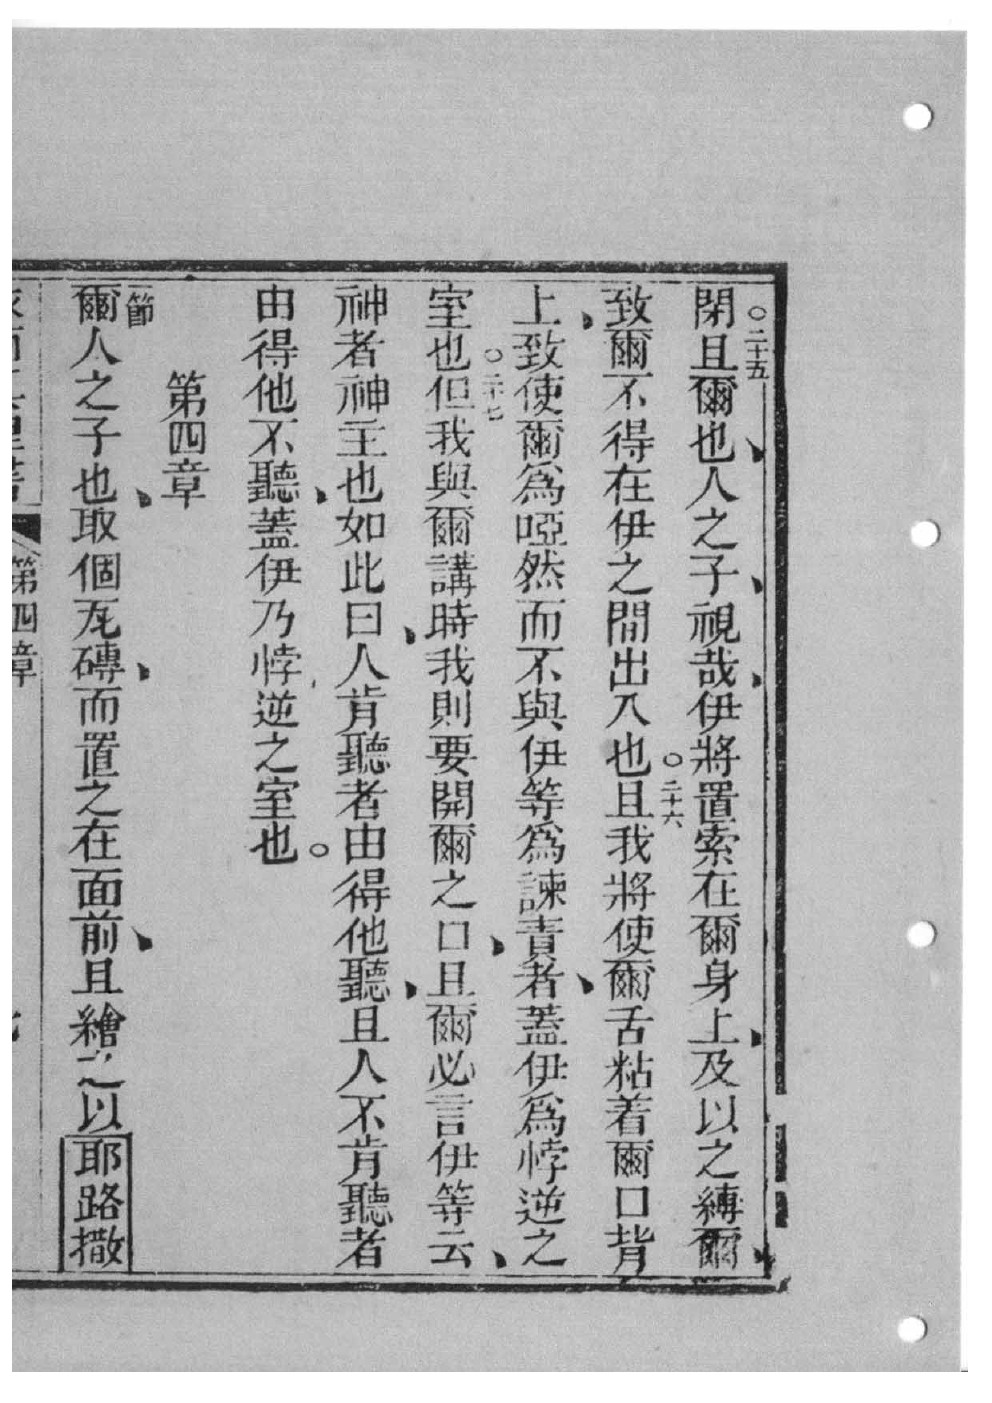 ○二十五
閉且爾也人之子視哉伊將置索在爾身上及以之縛爾
致爾不得在伊之間出入也○二十六且我將使爾舌粘着爾口背
上致使爾爲啞然而不與伊等爲諫責者蓋伊爲悖逆之
室也○二十七但我與爾講時我則要開爾之口且爾必言伊等云
神者神主也如此曰人肯聽者由得他聽且人不肯聽者
由得他不聽蓋伊乃悖逆之室也○
第四章
一節
爾人之子也取個瓦磚而置之在面前且繪之以耶路撒
第四章